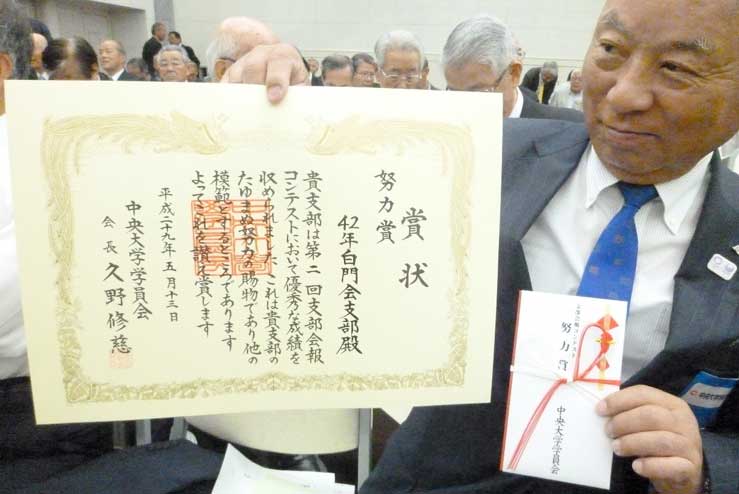 賞状
努力賞
42年白門会支部殿
貴支部は第二回支部会報
コンテストにおいて優秀な成績を
収められましたこれは貴支部の
たゆまぬ努力の賜物であり他の
模範とするところであります
よってこれを讃え賞します
平成二十九年五月十三日
中央大学学員会
会長 久野修慈
支部会報コンテスト
努力賞
中央大学学員会